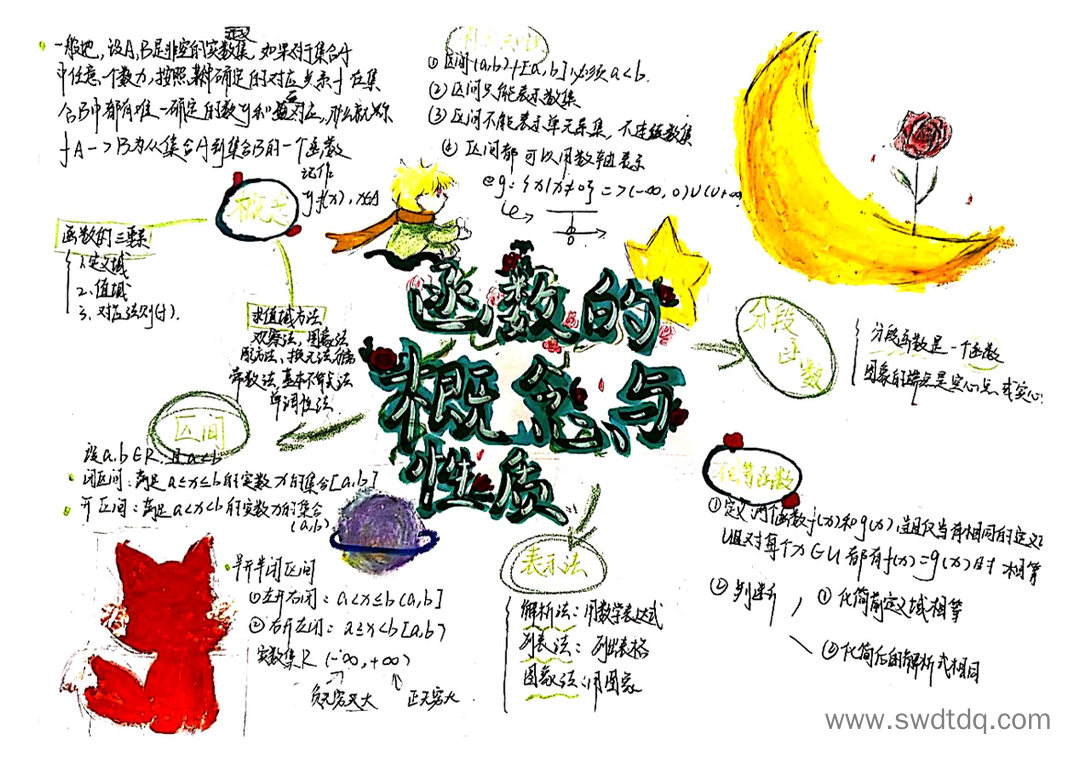 定义
一般地,设A,B是非空的实数集,如果对于集合A
中任意一个数x,按照某种确定的对应关系f 在集
合B中都有唯一确定的数y和x对应,那么就称
f A->B为从集合A到集合B的一个函数
记作
y=f(x),x∈A
概念
函数的三要素
1.定义域
2.值域
3.对应法则(f).
求值域方法
观察法,图象法
配方法,换元法
常数法 基本不等式法
单调性法
① 区间(a,b)[a,b]必须a<b.
② 区间只能表示数集
③ 区间不能表示单元素集,不连续数集
④ 区间都可以用数轴表示
eg:{x|x≠0}=>(-∞,0)∪(0,+∞)
0
函数的
概念与
性质
分段
函数
分段函数是一个函数
图象的端点是实心点或空心
区间
设a,b∈R,且a<b
闭区间:满足a≤x≤b的实数x的集合[a,b]
开区间:满足a<x<b的实数x的集合
(a,b)
半开半闭区间
①左开右闭:a<x≤b(a,b]
②右开左闭:a≤x<b[a,b)
实数集R(-∞,+∞)
负无穷大 正无穷大
表示法
解析法:用数学表达式
列表法:列出表格
图象法:用图象
相等函数
①定义:两个函数f(x)和g(x),当且仅当有相同的定义域
U且对每个x∈U都有f(x)=g(x)时 相等
② 判断
① 化简前定义域相等
② 化简后的解析式相同
www.swdtdq.com